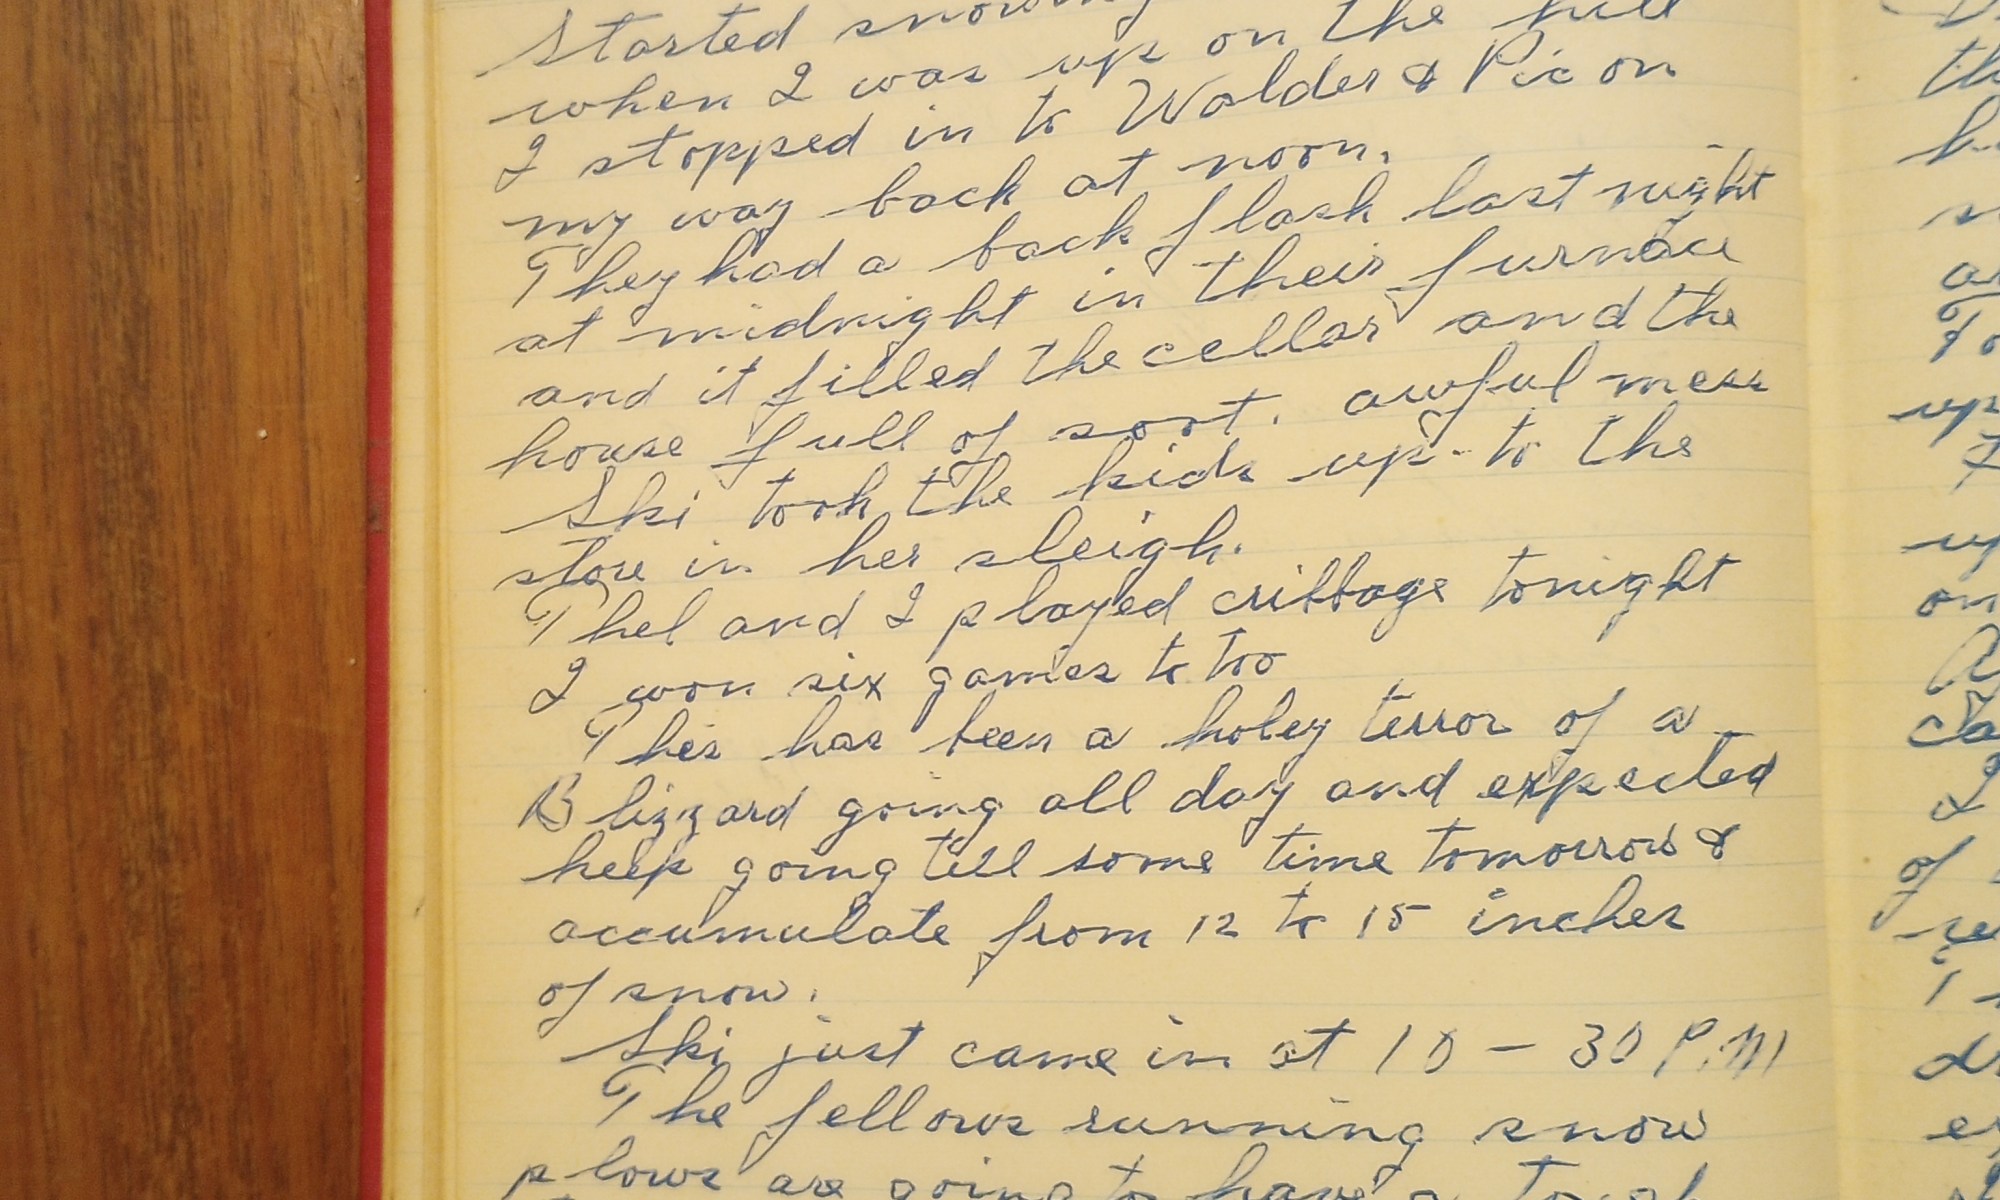 Started snowing
when I was up on the hill
I stopped in to Walder & Pic on
my way back at noon.
They had a back flash last night
at midnight in their furnace
and it filled the cellar and the
house full of soot. awful mess
Ski took the kids up to the
store in her sleigh.
Thel and I played cribbage tonight
I won six games to too
This has been a holey terror of a
Blizzard going all day and expected
keep going till some time tomorrow &
accumulate from 12 to 15 inches
of snow.
Ski just came in at 10 - 30 P.M
The fellows running snow
plows are going to have a tough